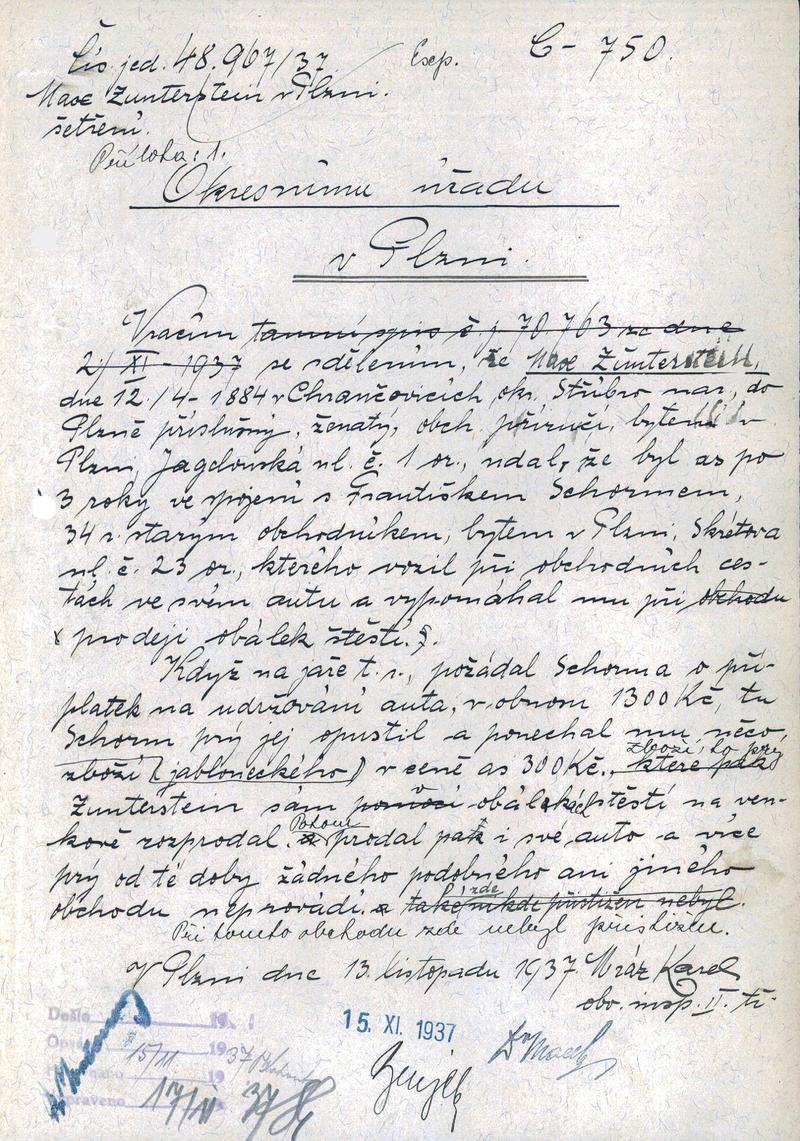 Čís. jed. 48.967/37
Exp.
C - 750.
Max Zunterstein v Plzni.
šetření.
Příloha: 1.
Okresnímu úřadu
v Plzni.
Vracím tamní spis č j 70.763 ze dne
2/ XI - 1937 se sdělením, že Max Zunterstein,
dne 12./4- 1884 v Chrančovicích, okr. Stříbro nar., do
Plzně příslušný, ženatý, obch. příručí, bytem v
Plzni, Jagelovská ul. č. 1 or., udal, že byl as po
3 roky ve spojení s Františkem Schormem,
34 r. starým obchodníkem, bytem v Plzni, Skrétova
ul. č. 23 or., kterého vozil při obchodních ces-
tách ve svém autu a vypomáhal mu při obchodu
x prodeji obálek štěstí.
Když na jaře t. r., požádal Schorma o pří-
platek na udržování auta, v obnosu 1300 Kč, tu
Schorm prý jej opustil a ponechal mu něco,
zboží, to prý
zboží (jabloneckého) v ceně as 300 Kč., které pak
Zunterstein sám pomocí v obálkách štěstí na ven-
kově rozprodal. a Potom prodal pak i své auto a více
prý od té doby žádného podobného ani jiného
obchodu neprovádí. a také zde nikde přistižen nebyl.
Při tomto obchodu zde nebyl přistižen.
V Plzni dne 13. listopadu 1937. Mráz Karel
obv. insp. II. tř.
Došlo 19
15. XI. 1937
15/11 1937
17/11 37